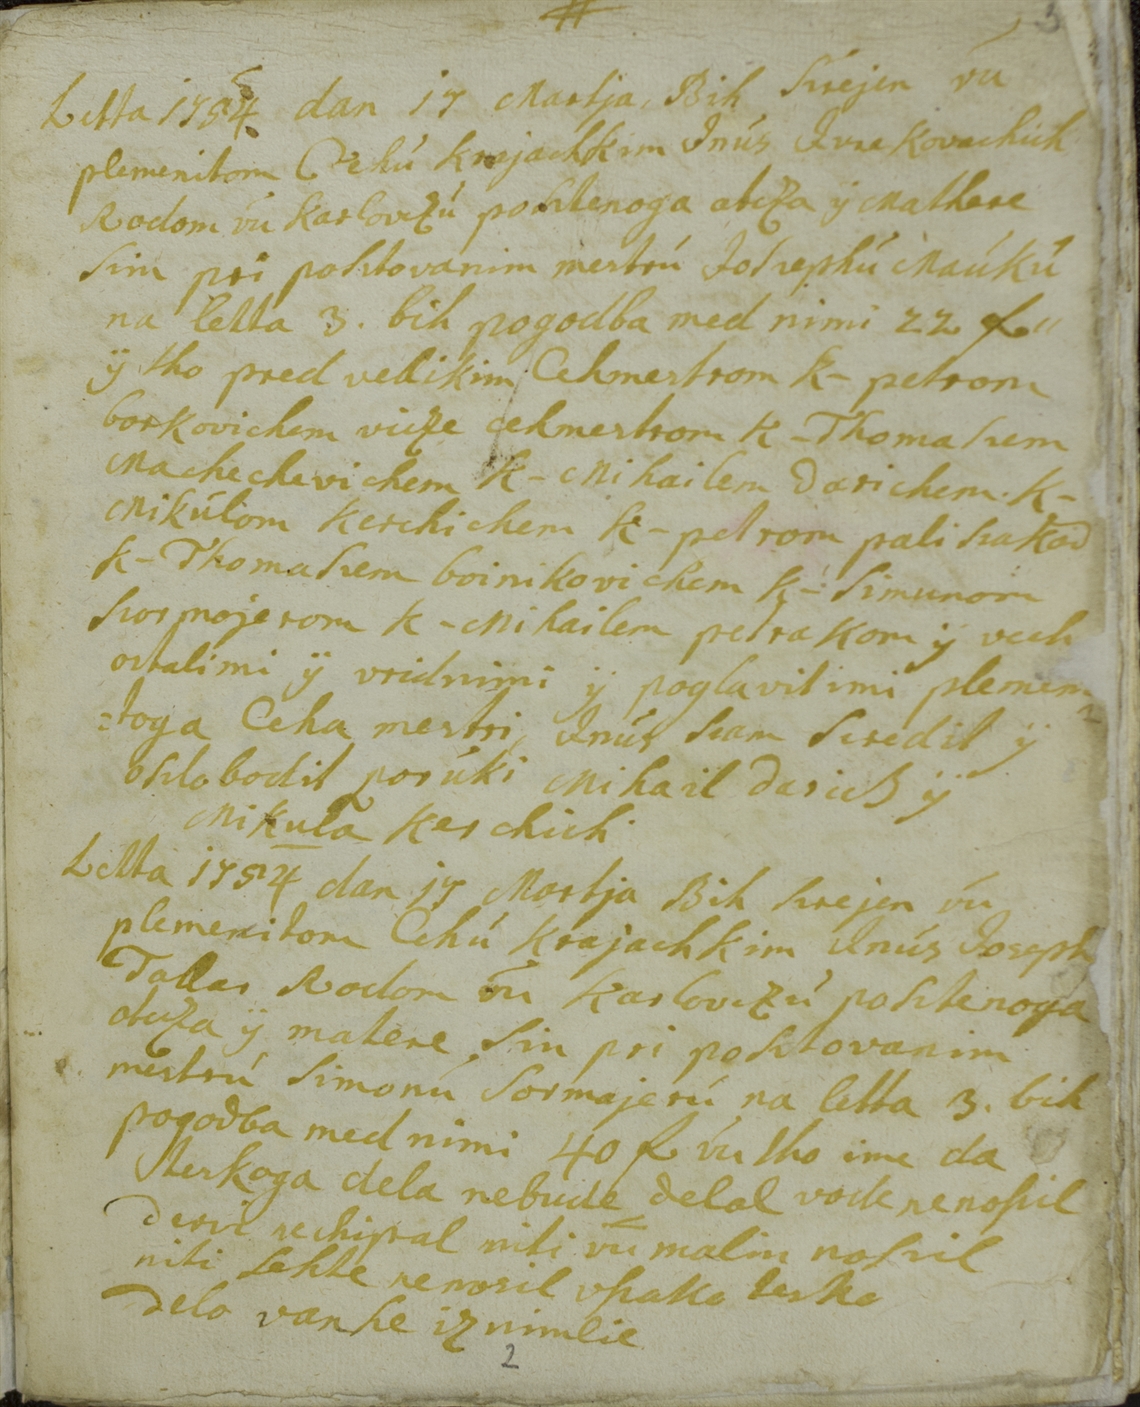 3
Letta 1754 dan 17 Martja, Bih srejen vú
plemenitom Cehú krajachkim Inús Ivrekovachich
Rodom vú Karlovczú poshtenoga otcza ÿ Mathere
sin pri poshtovanim mestrú Joshephú Maúkú
na letta 3. bih pogodba med nimi 22 f"
ÿ tho pred velikim Cehmestrom k- petrom
borkovichem vicze cehmestrom k-Thomashem
Machechevichem k- Mihailem Darichem. k-
Mikúlom Kerchichem k-petrom palishakom
k-Thomashem boinikovichem k- simunom
sormojerom k-Mihailem petrakom ÿ vseh
ostalimi ÿ vridnimi ÿ poglavitimi plemeni
=toga Ceha mestri, Inús sam sredil ÿ
oslobodil porúki Mihail Darich ÿ
Mikula Kerchich
Letta 1754 dan 17 Martja Bih srejen vú
plemenitom Cehú Krajachkim Inús Joseph
Tallar Rodom vú Karlovczú poshtenoga
otcza ÿ matere sin pri poshtovanim
mestrú simonú sormajerú na letta 3. bih
pogodba med nimi 40 f vú tho ime da
terkoga dela nebude delal vode nenosil
dervi nechipal niti vú malin nosil
niti sehte nenosil vsako tesko
delo vanse iznimlie
2